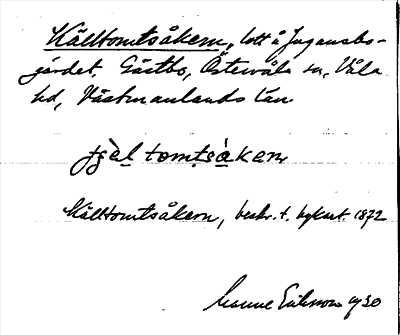 Källtomtsåkern, lott å Jugansbo-
gärdet, Gästbo, Östervåla sn, Våla
hd, Västmanlands län
tjæ̀l tomtsàkeṇ
Källtomtsåkern, beskr. t. lgkart. 1872
Manne Eriksson 1930